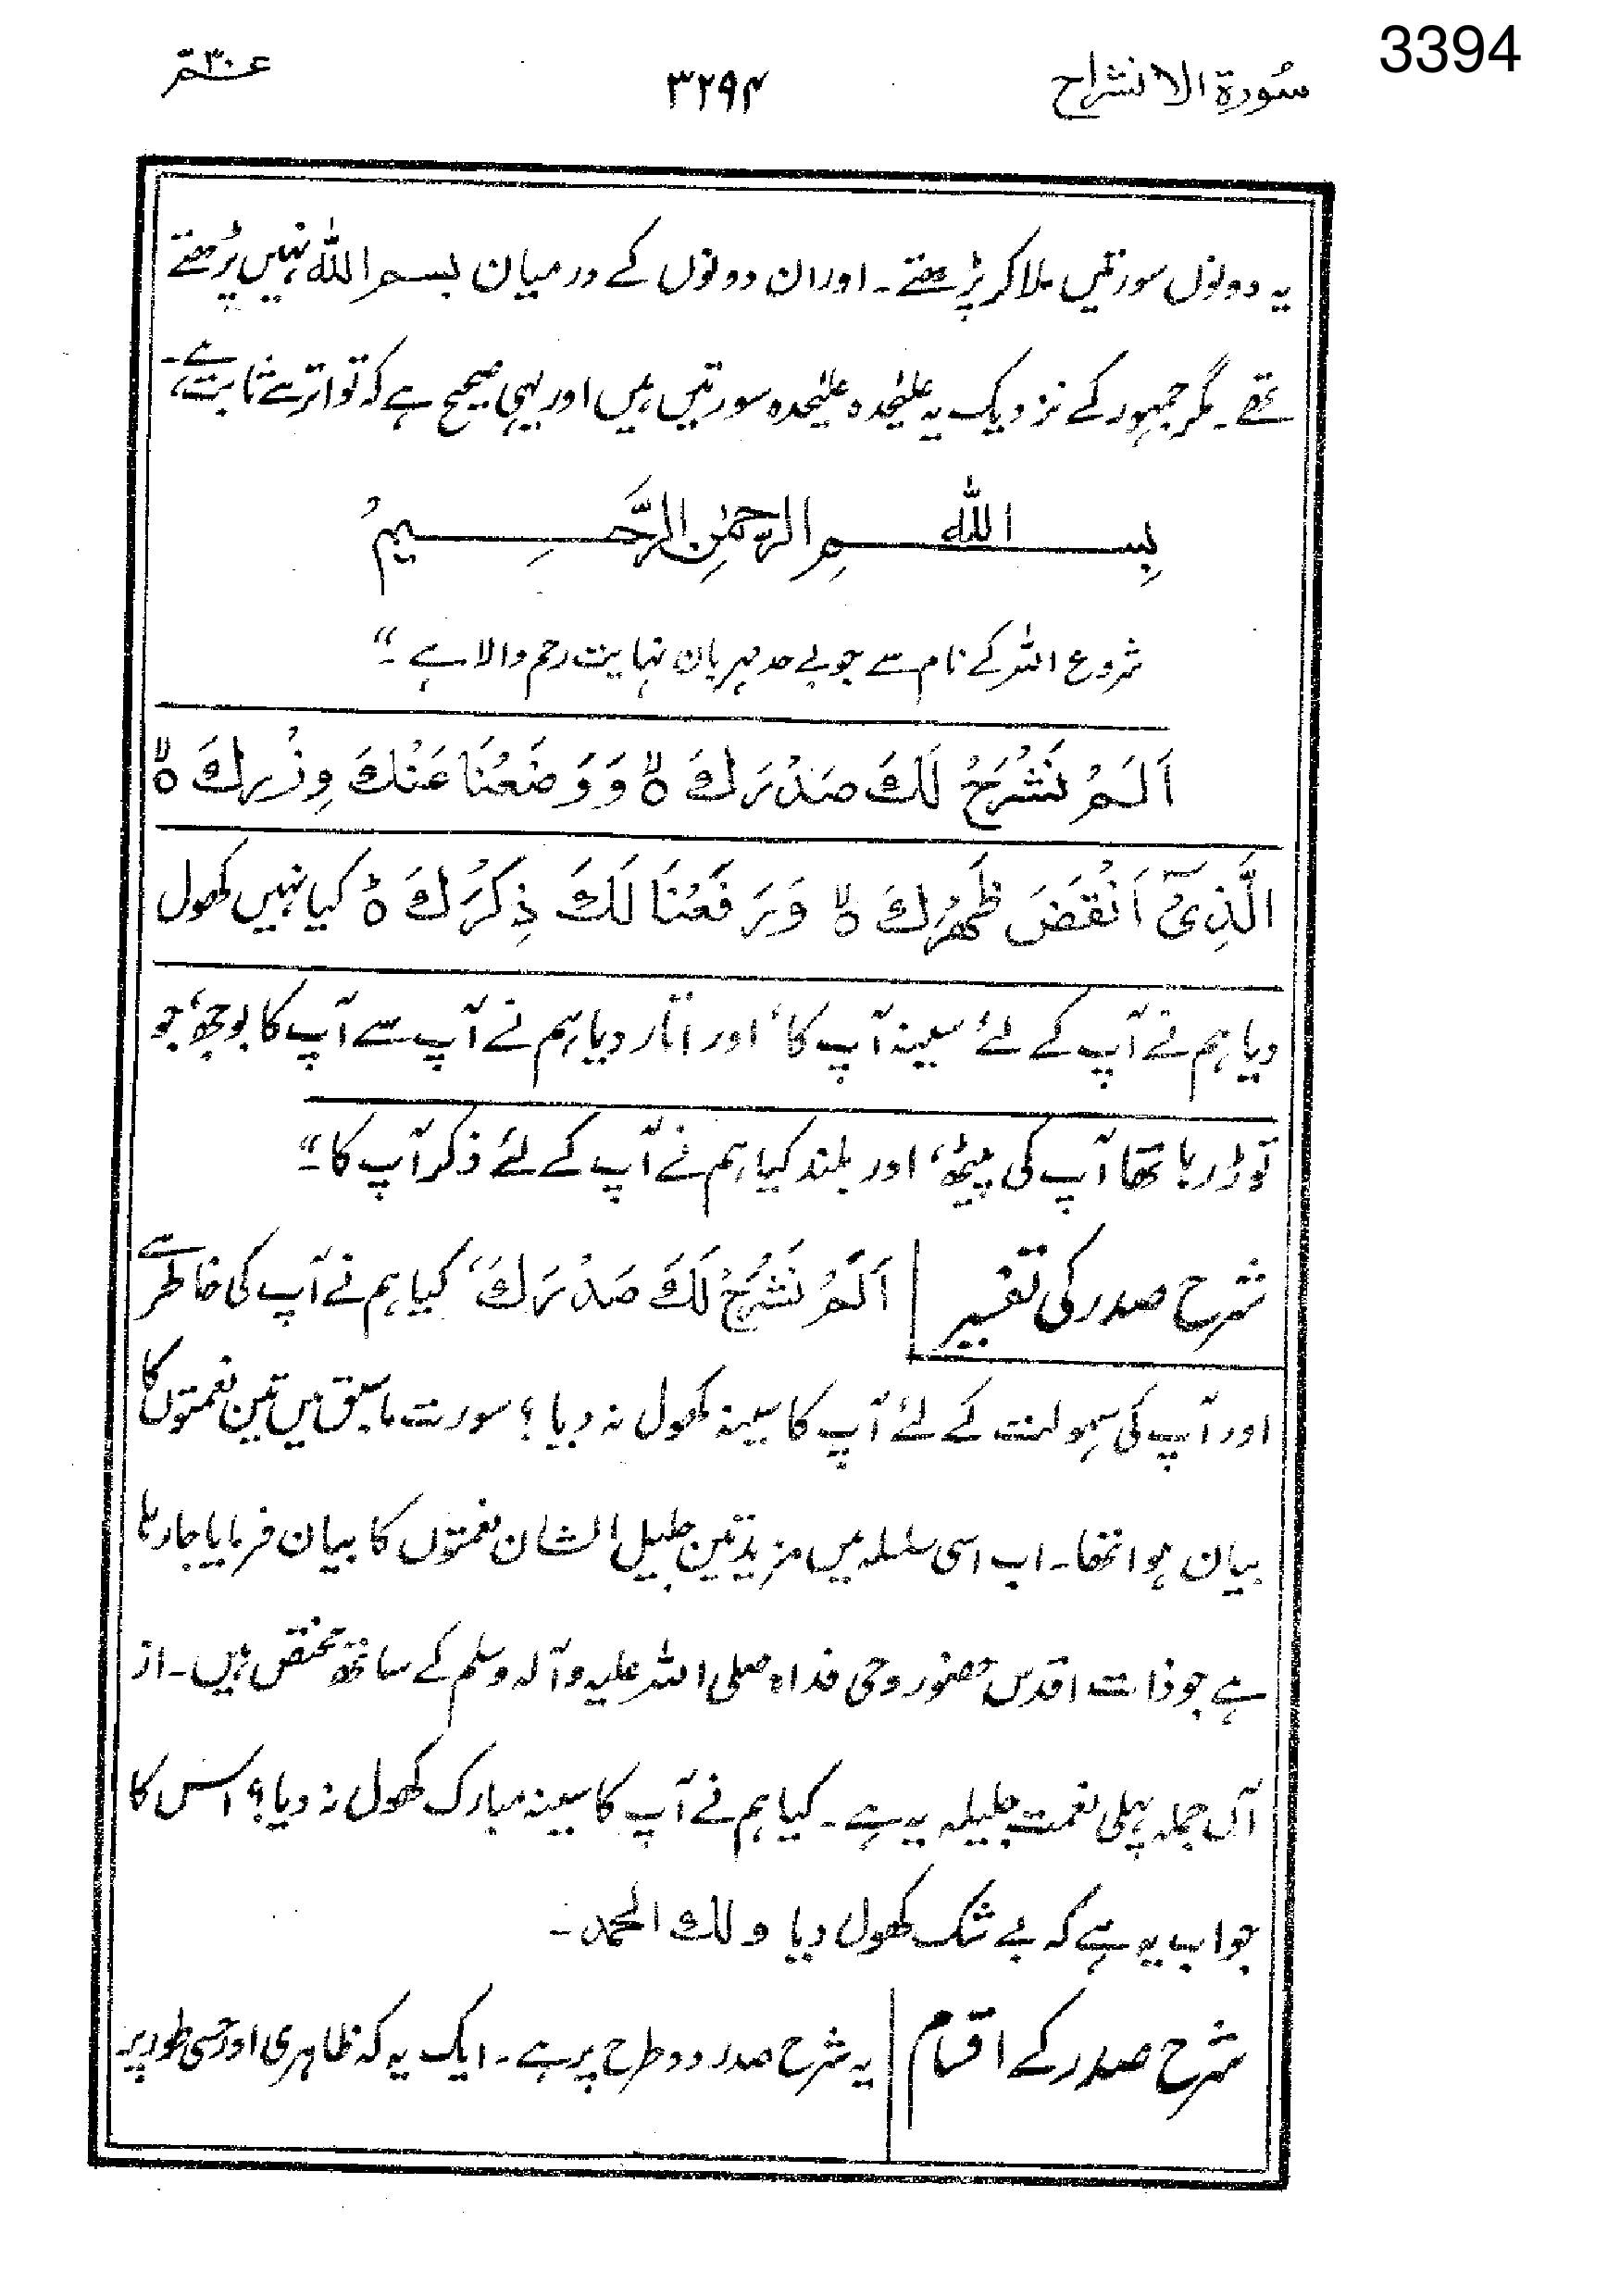 3394
سُورة الانشراح
۳۲۹۴
عـــم ۳۰
یہ دونوں سورتیں ملا کر پڑھتے۔ اور ان دونوں کے درمیان بسم اللہ نہیں پڑھتے
تھے۔ مگر جمہور کے نزدیک یہ علیٰحدہ علیٰحدہ سورتیں ہیں اور یہی صحیح ہے کہ تواتر سے ثابت ہے۔
بِسـمِ اللہ الرحمٰنِ الرَّحِـيمُ
شروع اللہ کے نام سے جو بے حد مہربان نہایت رحم والا ہے۔“
اَلَمْ نَشْرَحْ لَكَ صَدْرَكَ ۙ وَوَضَعْنَا عَنْكَ وِزْرَكَ ۙ
الَّذِیْٓ اَنْقَضَ ظَهْرَكَ ۙ وَرَفَعْنَا لَكَ ذِكْرَكَ ؕ کیا نہیں کھول
دیا ہم نے آپ کے لئے سینہ آپ کا‘ اور اتار دیا ہم نے آپ سے آپ کا بوجھ‘ جو
توڑ رہا تھا آپ کی پیٹھ‘ اور بلند کیا ہم نے آپ کے لئے ذکر آپ کا۔“
شرح صدر کی تفسیر | اَلَمْ نَشْرَحْ لَكَ صَدْرَكَ‘ کیا ہم نے آپ کی خاطر سے
اور آپ کی سہولت کے لئے آپ کا سینہ کھول نہ دیا ؟ سورت ماسبق میں تین نعمتوں کا
بیان ہوا تھا۔ اب اسی سلسلہ میں مزید تین جلیل الشان نعمتوں کا بیان فرمایا جا رہا
ہے جو ذات اقدس حضور روحی فداہ صلی اللہ علیہ وآلہ وسلم کے ساتھ مختص ہیں۔ از
آں جملہ پہلی نعمت جلیلہ یہ ہے۔ کیا ہم نے آپ کا سینہ مبارک کھول نہ دیا؟ اس کا
جواب یہ ہے کہ بے شک کھول دیا ولك الحمد۔
شرح صدر کے اقسام | یہ شرح صدر دو طرح پر ہے۔ ایک یہ کہ ظاہری اور حسی طور پر